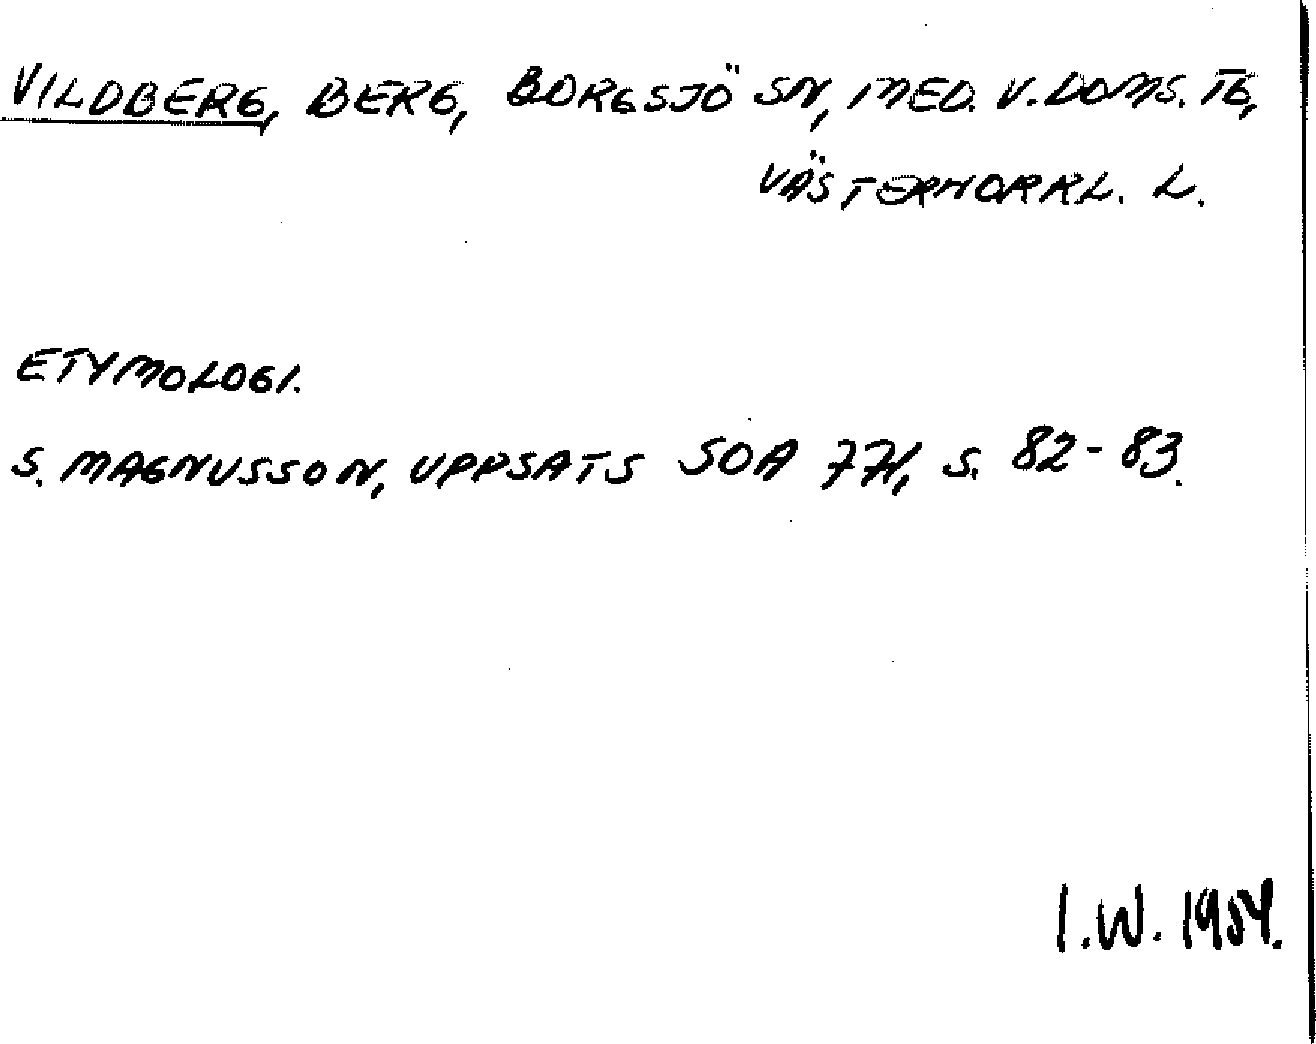 VILDBERG, BERG, BORGSJÖ SN, MED. V. DOMS. TG,
VÄSTERNORRL. L.
ETYMOLOGI.
S. MAGNUSSON, UPPSATS SOA 771, S. 82-83.
I.W. 1954.